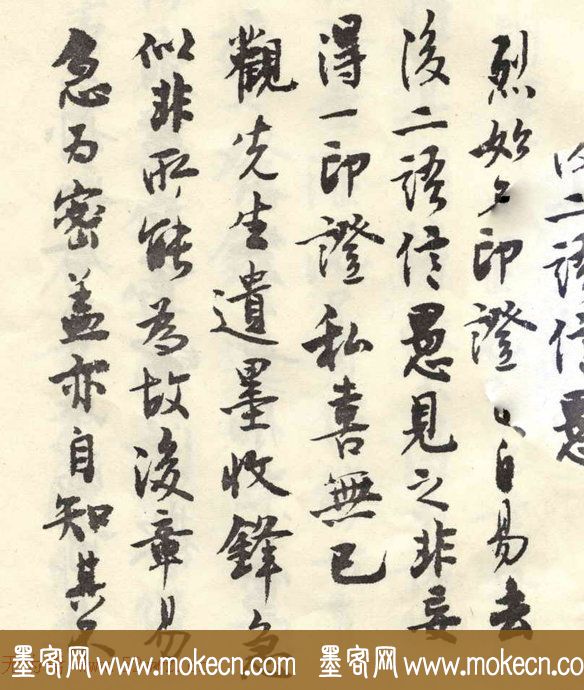 後二語信愚
烈始
印證
自易去
後二語信愚見之非妄
得一印證私喜無已
觀先生遺墨收鋒急
似非所能為故後章易
急為密蓋亦自知其
墨客网www.mokecn.com 墨客网www.mokecn.com